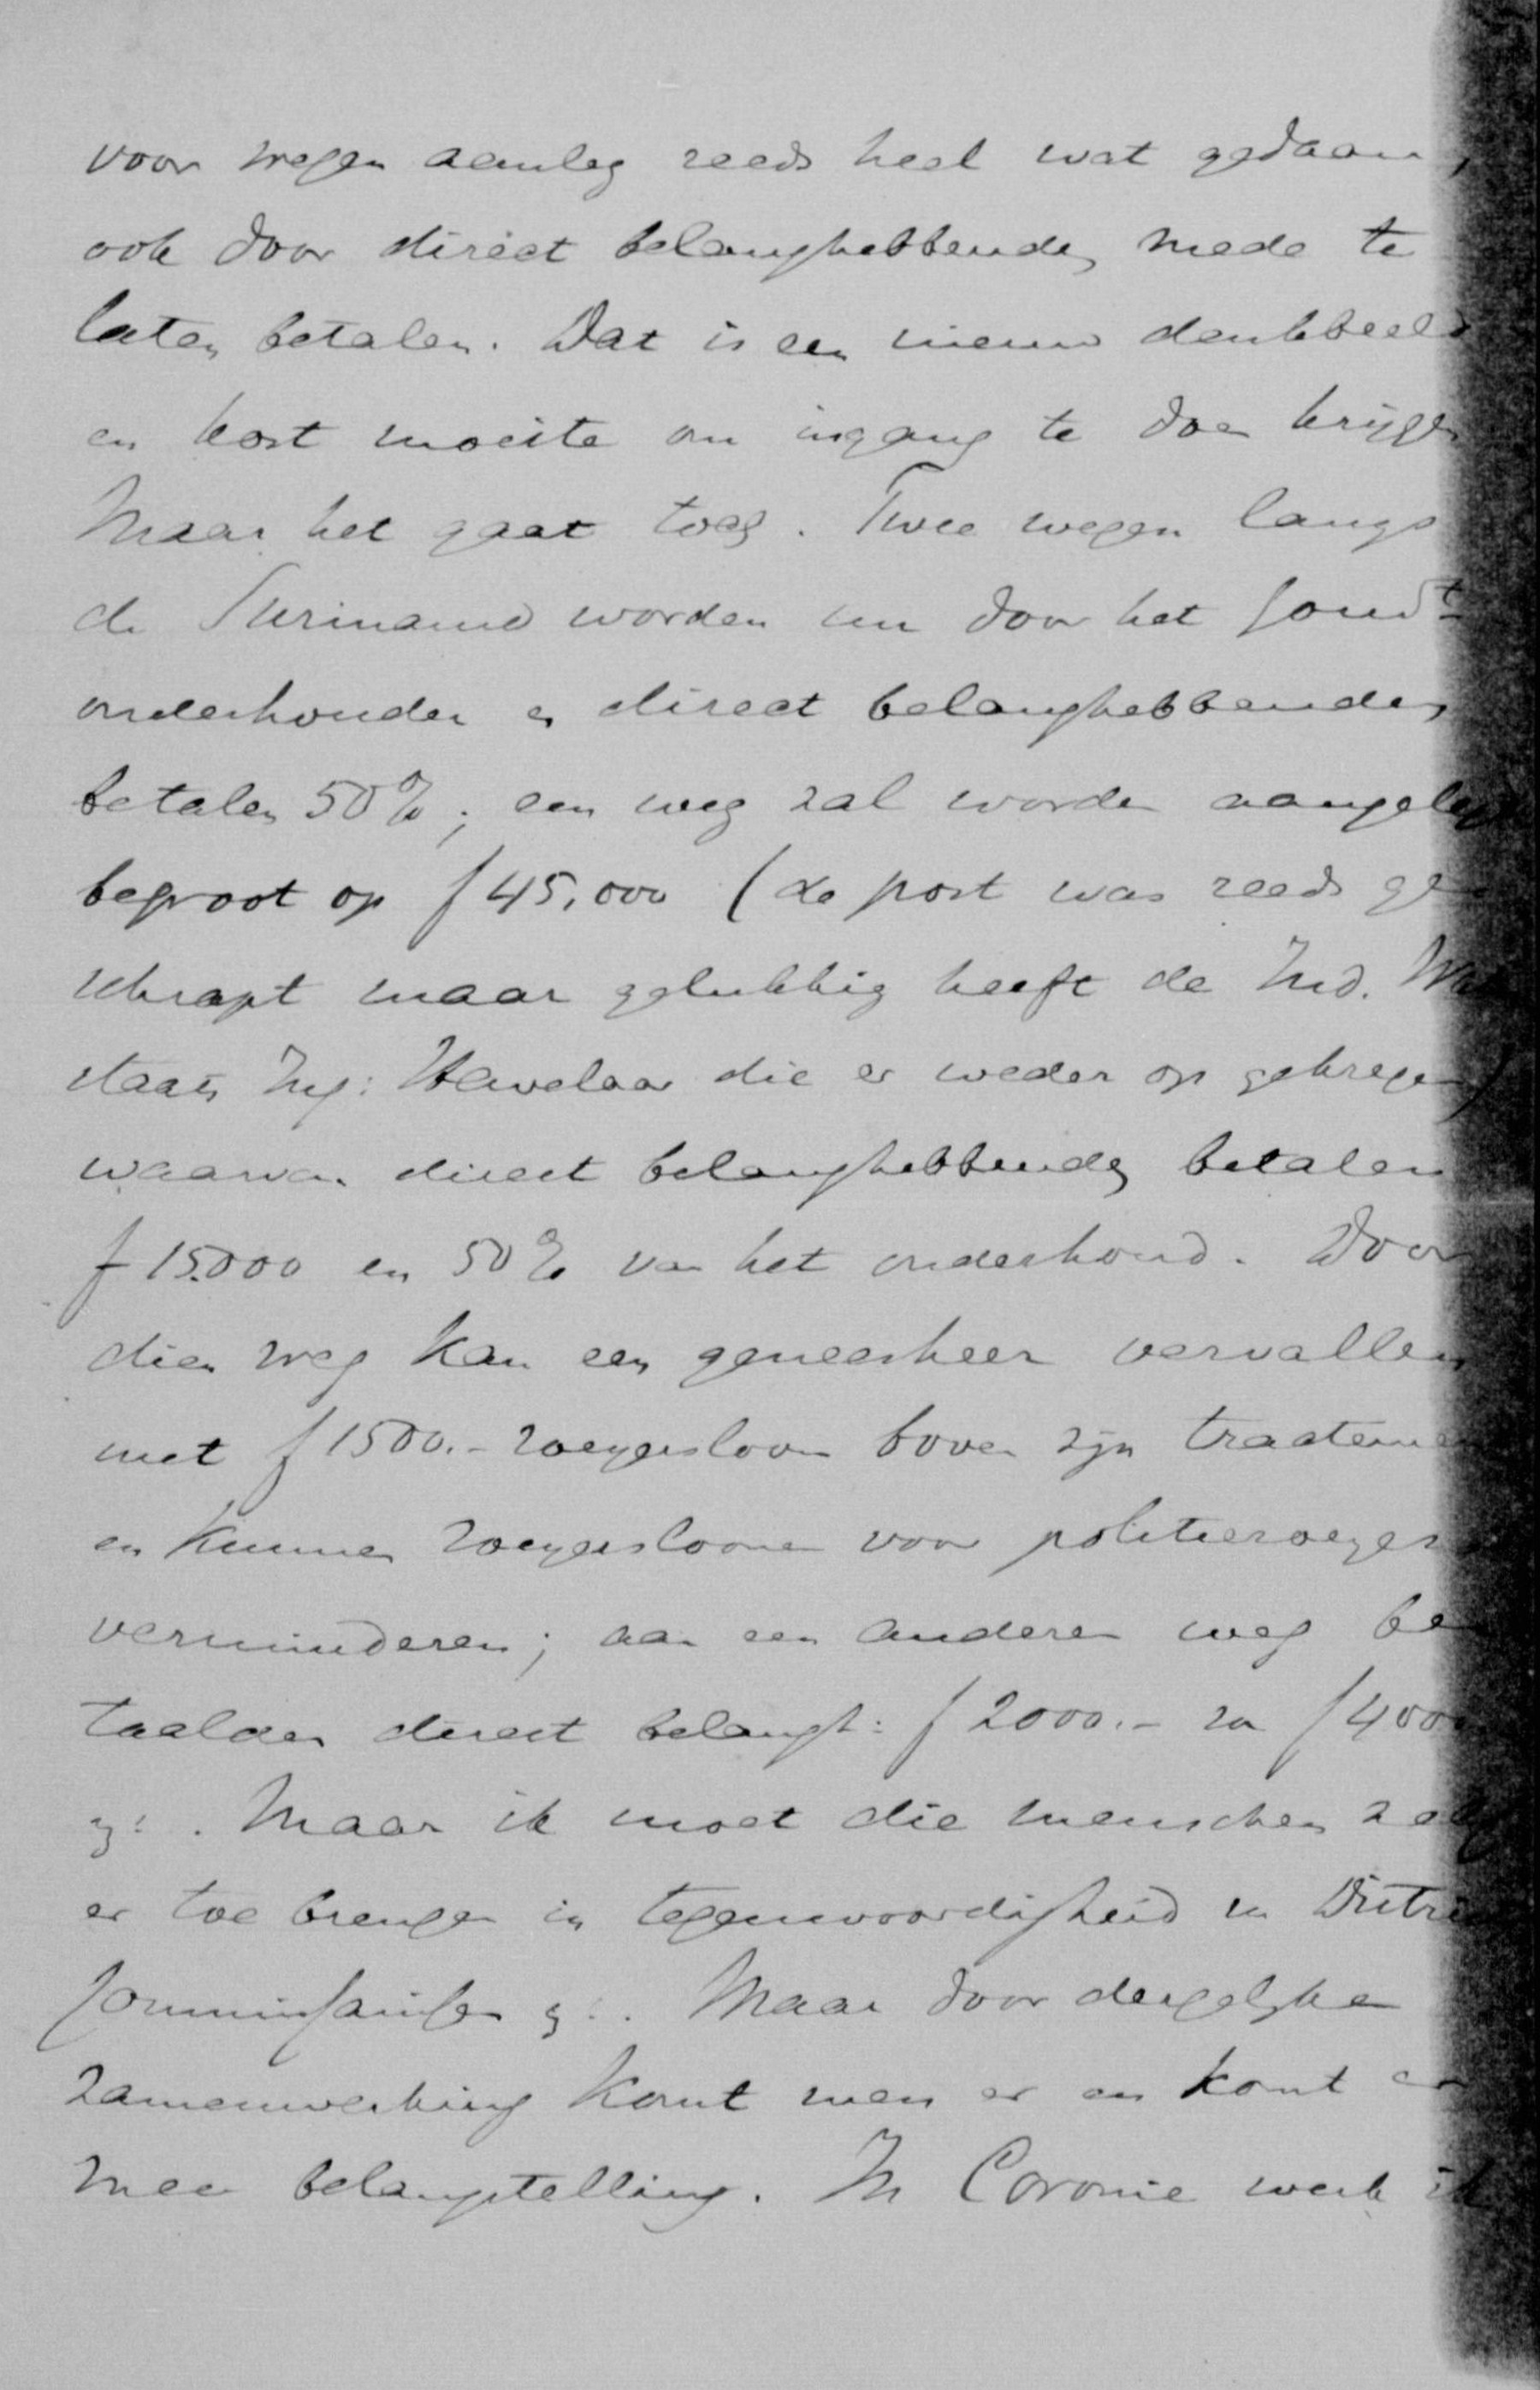 voor wegen aanleg reeds heel wat gedaan,
ook door direct belanghebbenden mede te
laten betalen. Dat is een nieuw denkbeeld
en kost moeite om ingang te doen krijgen
Maar het gaat toch. Twee wegen langs
de Suriname worden nu door het Gouvt
onderhouden en direct belanghebbenden
betalen 50%; een weg zal worden aangelegd
begroot op f 45,000 (de post was reeds ge
schrapt maar gelukkig heeft de Ind. Wa
staats Ing: Havelaar die er weder op gekregen)
waarvan direct belanghebbenden betalen
f 15.000 en 50% van het onderhoud. Door
dien weg kan een geneesheer vervallen
met f 1500.- roeyersloon boven zijn tractemen
en kunnen roeyersloonen voor politieroeyers
verminderen; aan een anderen weg be
taalden direct belangh: f 2000.- van f 4000
z: . Maar ik moet die menschen zelf
er toe brengen in tegenwoordigheid van Distric
Commissarissen z: . Maar door dergelijke
samenwerking komt men er en komt er
meer belangstelling. In Coronie werk ik